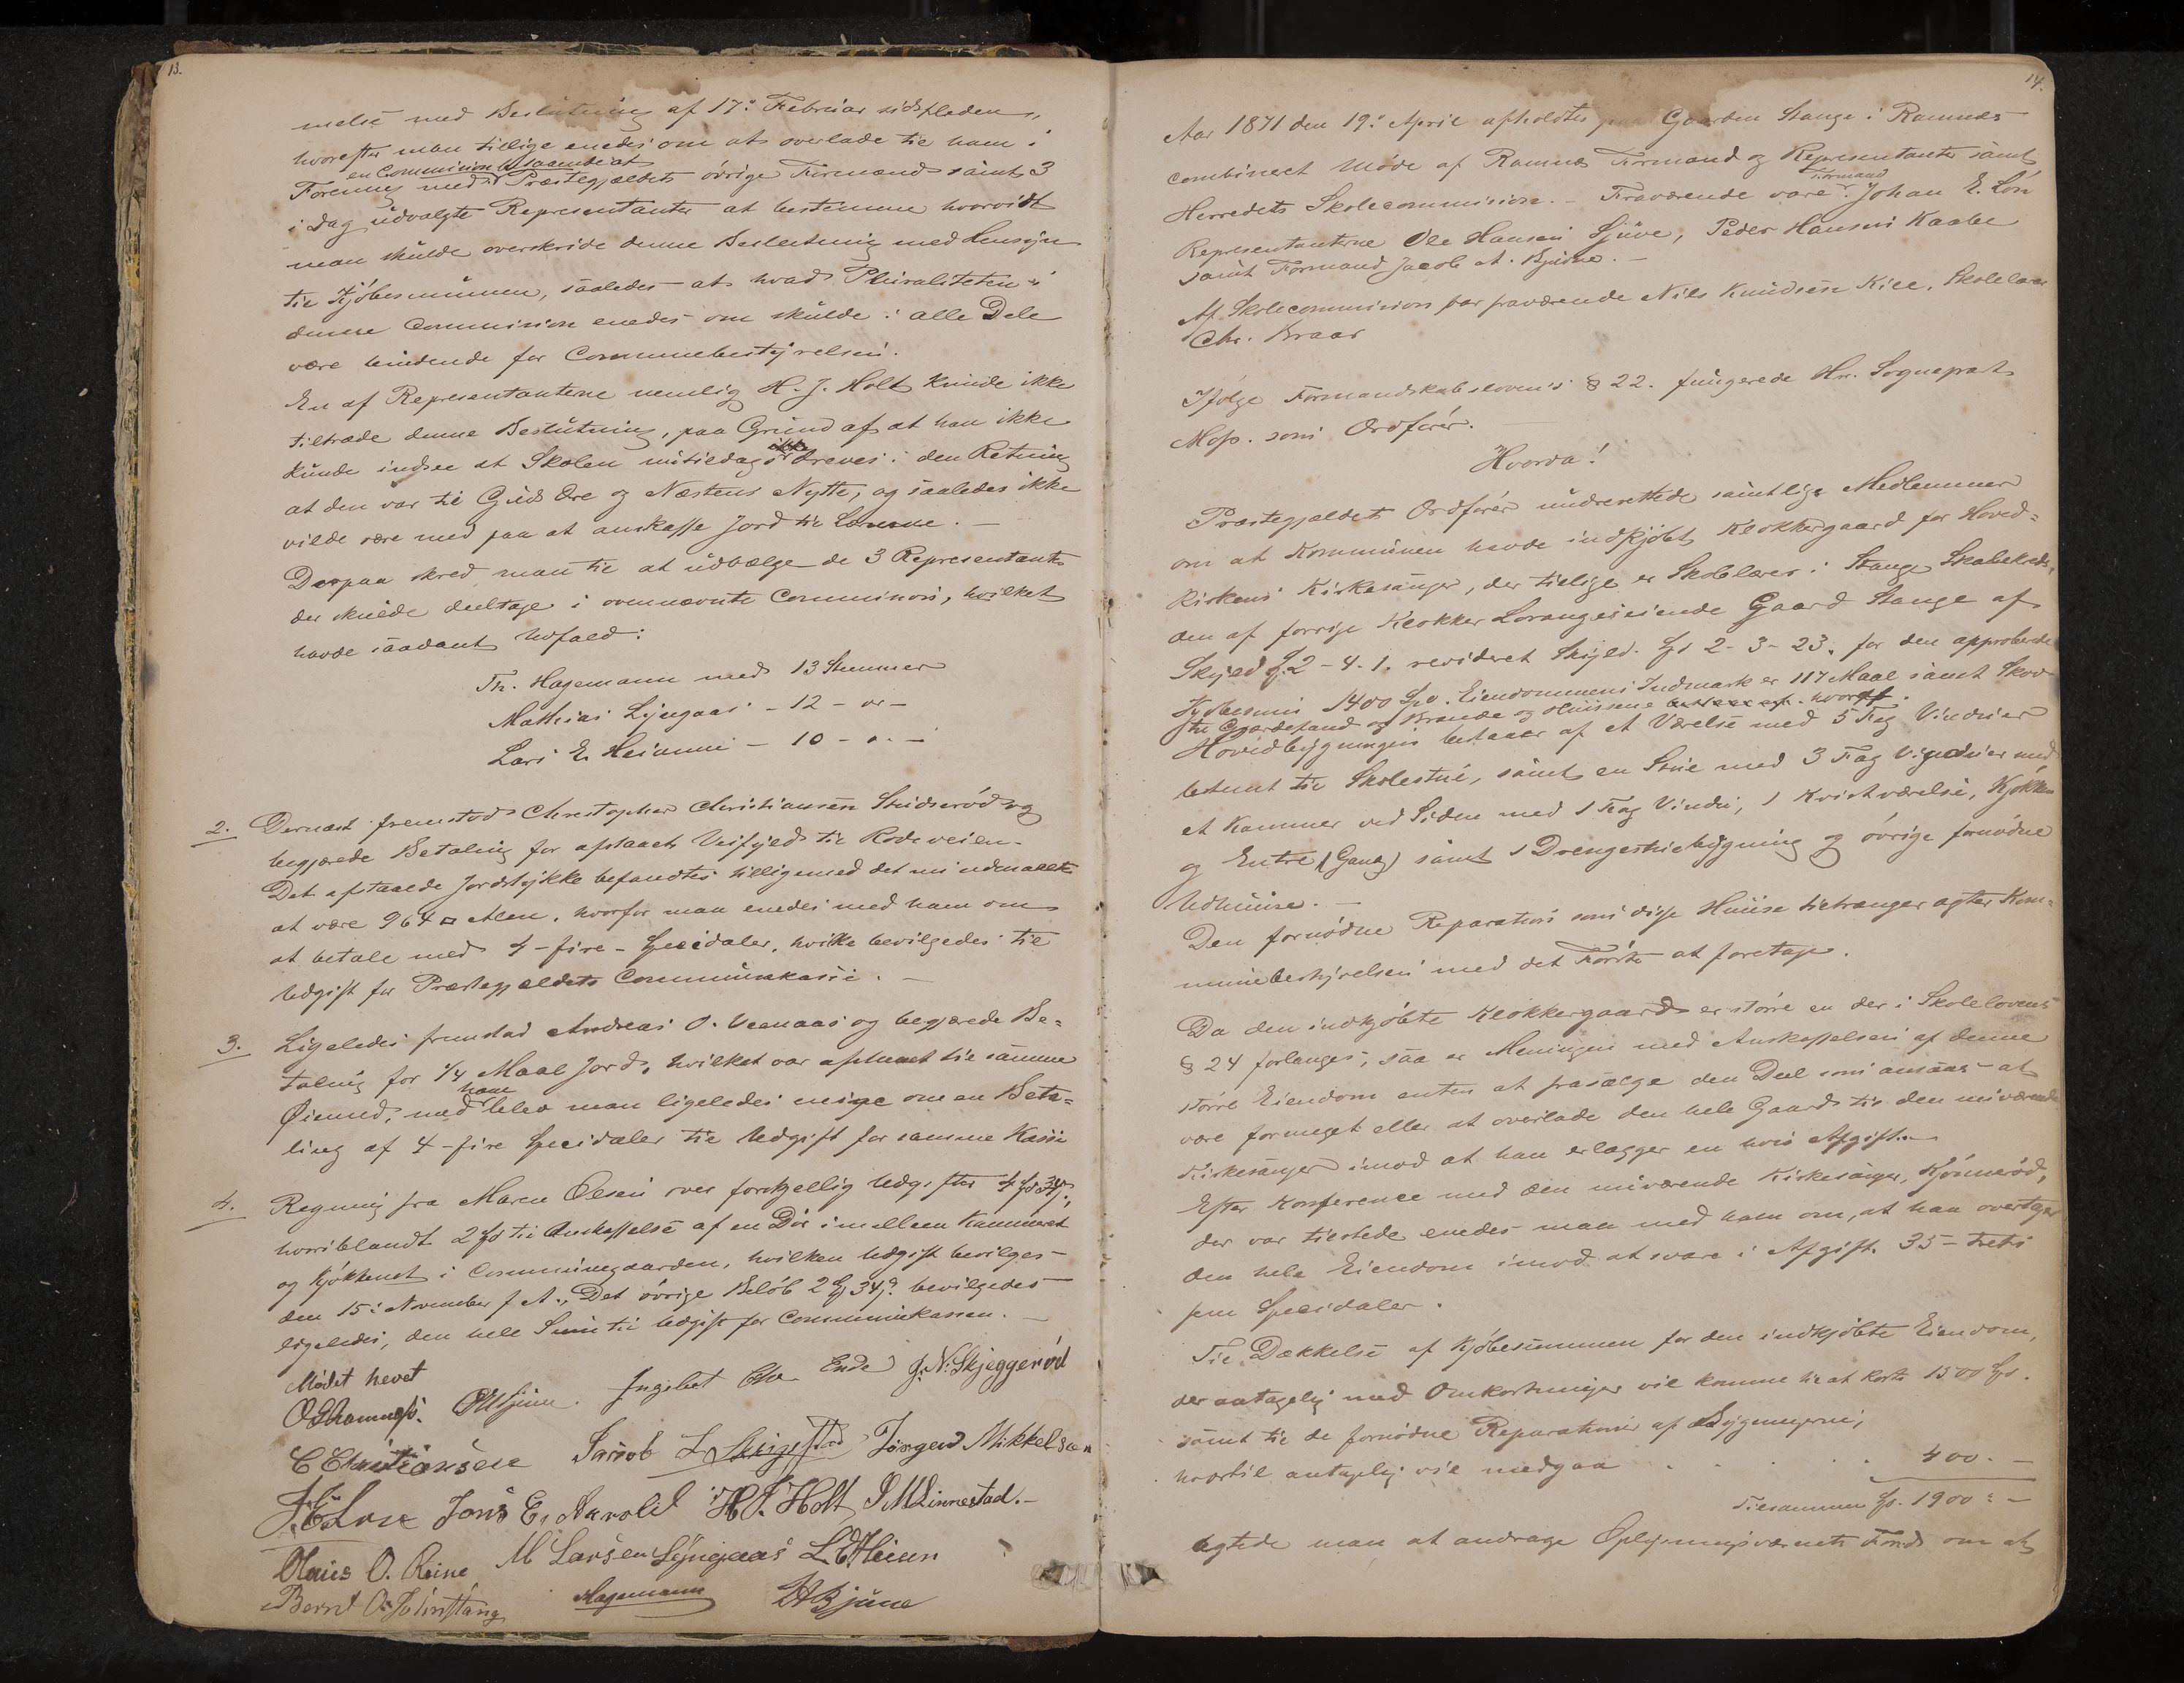 13.
melse med Beslutning af 17de Februar sidstleden,
hvorefter man tillige enedes om at overlade til ham i
en Commision bestaaende af
Forening med Præstegjældets øvrige Formænd samt 3
i Dag udvalgte Representanter at bestemme hvorvidt
man skulde overskride denne Beslutning med Hensyn
til Kjøbesummen, saaledes at hvad Pluraliteten i
denne Commision enedes om skulde i alle Dele
være bindende for Communebestyrelsen.
En af Representanterne nemlig H. J. Holt kunde ikke
tiltræde denne Beslutning, paa Grund af at han ikke
kunde indsee at Skolen nutildags ikke dreves i den Retning
at den var til Guds Ære og Næstens Nytte, og saaledes ikke
vilde være med paa at anskaffe Jord til Lærerne. —
Derpaa skred man til at udvælge de 3 Representanter
der skulde deeltage i ovennævnte Commision, hvilket
havde saadant Udfald:
Th. Hagemann med 13 Stemmer
Mathias Lyngaas - 12 - " -
Lars E. Heianne - 10 - " -
2. Dernæst fremstod Christopher Christiansen Stidserød og
begjærede Betaling for aftaaet Veifyld til Rodeveien.
Det aftaaede Jordstykke befandtes tilligemed det nu udmaalte
at være 964 □ Alen, hvorfor man enedes med ham om
at betale med 4 - fire - Specidaler, hvilke bevilgedes til
Udgift for Præstegjældets Communekasse. —
3. Ligeledes fremstod Andreas O. Veenaas og begjærede Be=
taling for 1/4 Maal Jord, hvilket var aftaaet til samme
Øiemed, med ham blev man ligeledes enige om en Beta=
ling af 4 - fire Specidaler til Udgift for samme Kasse
4. Regning fra Maren Olsen over forskjellig Udgifter 4 Spd 34 s,
hvoriblandt 2 Spd til Anskaffelse af en Dør imellem Kammeret
og Kjøkkenet i Communegaarden, hvilken Udgift bevilges
den 15de November f. A., Det øvrige Beløb 2 Spd 34 s bevilgedes
ligeledes, den hele Sum til Udgift for Communekassen. —
Mødet hevet
Ingebret Chr. Ende J. N. Skjeggerød
C Christiansen Jacob L Jørgen Mikkelsen
Jons E. Aarold H. J. Holt I M Linnestad. -
Hans O. Reine M Larsen Lyngaas L. E. Heian
Bernt O. Hagemann
14.
Aar 1871 den 19de April afholdtes paa Gaarden Stange i Ramnæs
combineet Møde af Ramnæs Formænd og Representanter samt
Herredets Skolecommision. - Fraværende vare Formand Johan E. Løn
Representanterne Ole Hansen Sjuve, Peder Hansen Kaabe
samt Formand Jacob A. Bjune. -
Af Skolecommision var fraværende Nils Knudsen Kile, Skolelærer
Chr. Braar
Ifølge Formandskabslovens § 22. fungerede Hr. Sogneprest
som Ordfører.
Hvorda!
Præstegjældets Ordfører underrettede samtlige Medlemmer
om at Kommunen havde indkjøbt Klokkergaard for Hoved=
kirkens Kirkesanger, der tillige er Skolelærer i Stange Skolekreds,
den af forrige Klokker Lorange eiende Gaard Stange af
Skyld 2 - 4 - 1. revideret Skyld. 2 - 3 - 23. for den approberede
Kjøbesum 1400 Spd. Eiendommens Indmark er 117 Maal samt Skov
til Gjærdefand og Brænde og Husene
Hovedbygningen bestaaer af et Værelse med 5 Fag Vinduer
bestemt til Skolestue, samt en Stue med 3 Fag Vinduer med
et Kammer ved Siden med 1 Fag Vindu, 1 Kvistværelse, Kjøkken
og Entre (Gang) samt 1 Drengestuebygning og øvrige fornødne
Udhuse. -
Den fornødne Reparation som disse Huse tiltrænger agter Kom=
munebestyrelsen med det Første at foretage.
Da den indkjøbte Klokkergaard er større en der i Skolelovens
§ 24 forlanges, saa er Meningen med Anskaffelsen af denne
større Eiendom enten at frasælge den Deel som ansaaes at
være formeget eller at overlade den hele Gaard til den nuværende
Kirkesanger imod at han erlægger en hvis Afgift. -
Efter Konference med den nuværende Kirkesanger, Kjønnerød,
der var tilstede enedes man med ham om, at han overtager
den hele Eiendom imod at svare i Afgift 35 - treti
fem Specidaler.
Til Dækkelse af Kjøbesummen for den indkjøbte Eiendom,
der antagelig med Omkostninger vil komme til at koste 1500 Spd.
samt til de fornødne Reparationer af Bygningerne,
hvortil antagelig vil medgaa . . . . . 400. -
Tilsammen Spd. 1900: -
agtede man at andrage Oplysningsvæsenets Fond om at